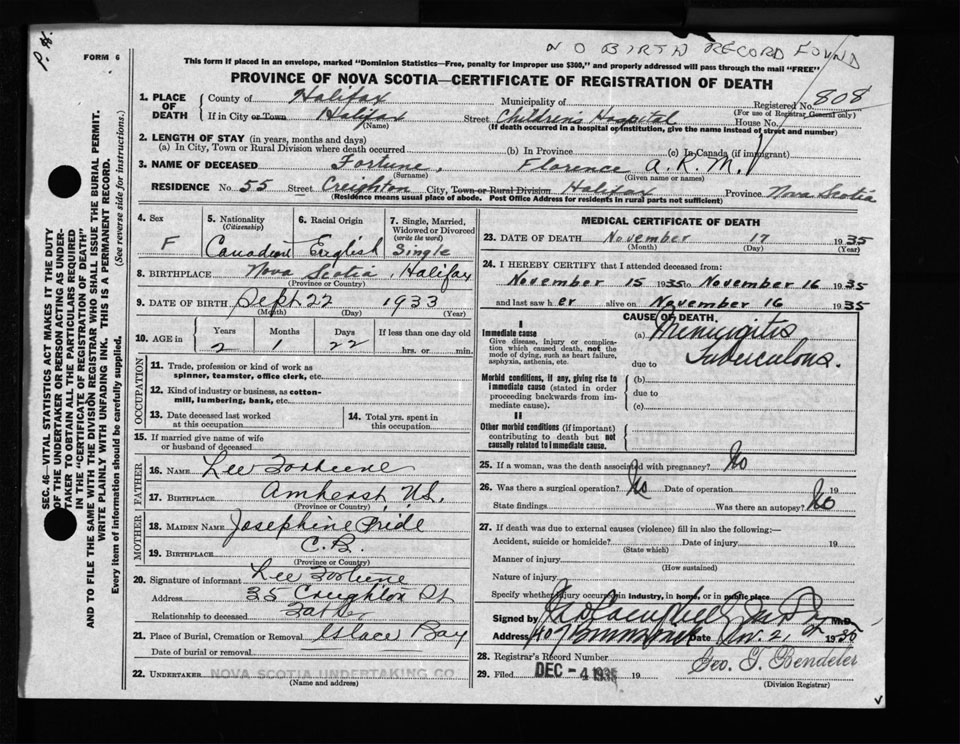 P. H.
NO BIRTH RECORD FOUND
FORM 6
This form if placed in an envelope, marked "Dominion Statistics—Free, penalty for improper use $300," and properly addressed will pass through the mail "FREE"
PROVINCE OF NOVA SCOTIA—CERTIFICATE OF REGISTRATION OF DEATH
1. PLACE OF DEATH County of Halifax Municipality of Registered No. 808
(For use of Registrar General only)
If in City or Town Halifax Street Children's Hospital House No.
(Name) (If death occurred in a hospital or institution, give the name instead of street and number)
2. LENGTH OF STAY (in years, months and days)
(a) In City, Town or Rural Division where death occurred (b) In Province (c) In Canada (if immigrant)
3. NAME OF DECEASED Fortune, Florence A. R. M.
(Surname) (Given name or names)
RESIDENCE No. 55 Street Creighton City, Town or Rural Division Halifax Province Nova Scotia
(Residence means usual place of abode. Post Office Address for residents in rural parts not sufficient)
4. Sex F
5. Nationality (Citizenship) Canadian
6. Racial Origin English
7. Single, Married, Widowed or Divorced (write the word) Single
8. BIRTHPLACE Nova Scotia, Halifax
(Province or Country)
9. DATE OF BIRTH Sept 22 1933
(Month) (Day) (Year)
10. AGE in Years Months Days If less than one day old
2 1 22 hrs. or min.
OCCUPATION
11. Trade, profession or kind of work as spinner, teamster, office clerk, etc.
12. Kind of industry or business, as cotton-mill, lumbering, bank, etc.
13. Date deceased last worked at this occupation
14. Total yrs. spent in this occupation
15. If married give name of wife or husband of deceased
FATHER
16. NAME Lee Fortune
17. BIRTHPLACE Amherst, N.S.
(Province or Country)
MOTHER
18. MAIDEN NAME Josephine Pride
19. BIRTHPLACE C. B.
(Province or Country)
20. Signature of informant Lee Fortune
Address 35 Creighton St
Relationship to deceased Father
21. Place of Burial, Cremation or Removal Glace Bay
Date of burial or removal
22. UNDERTAKER NOVA SCOTIA UNDERTAKING CO
(Name and address)
MEDICAL CERTIFICATE OF DEATH
23. DATE OF DEATH November 17 1935
(Month) (Day) (Year)
24. I HEREBY CERTIFY that I attended deceased from:
November 15 1935 to November 16 1935
and last saw her alive on November 16 1935
CAUSE OF DEATH
I
Immediate cause (a) Meningitis
Give disease, injury or complication which caused death, not the mode of dying, such as heart failure, asphyxia, asthenia, etc.
due to Tuberculous.
Morbid conditions, if any, giving rise to immediate cause (stated in order proceeding backwards from immediate cause).
(b)
due to
(c)
II
Other morbid conditions (if important) contributing to death but not causally related to immediate cause.
25. If a woman, was the death associated with pregnancy? No
26. Was there a surgical operation? No Date of operation 19
State findings Was there an autopsy? No
27. If death was due to external causes (violence) fill in also the following:—
Accident, suicide or homicide? Date of injury 19
(State which)
Manner of injury
(How sustained)
Nature of injury
Specify whether injury occurred in industry, in home, or in public place
Signed by M.D.
Address 407 Date Nov. 2, 19
28. Registrar's Record Number
Geo. T. Bendeler
29. Filed DEC -4 1935 19
(Division Registrar)
SEC. 46—VITAL STATISTICS ACT MAKES IT THE DUTY
OF THE UNDERTAKER OR PERSON ACTING AS UNDER-
TAKER TO OBTAIN ALL THE PARTICULARS REQUIRED
IN THE "CERTIFICATE OF REGISTRATION OF DEATH"
AND TO FILE THE SAME WITH THE DIVISION REGISTRAR WHO SHALL ISSUE THE BURIAL PERMIT.
WRITE PLAINLY WITH UNFADING INK. THIS IS A PERMANENT RECORD.
Every item of information should be carefully supplied. (See reverse side for instructions.)